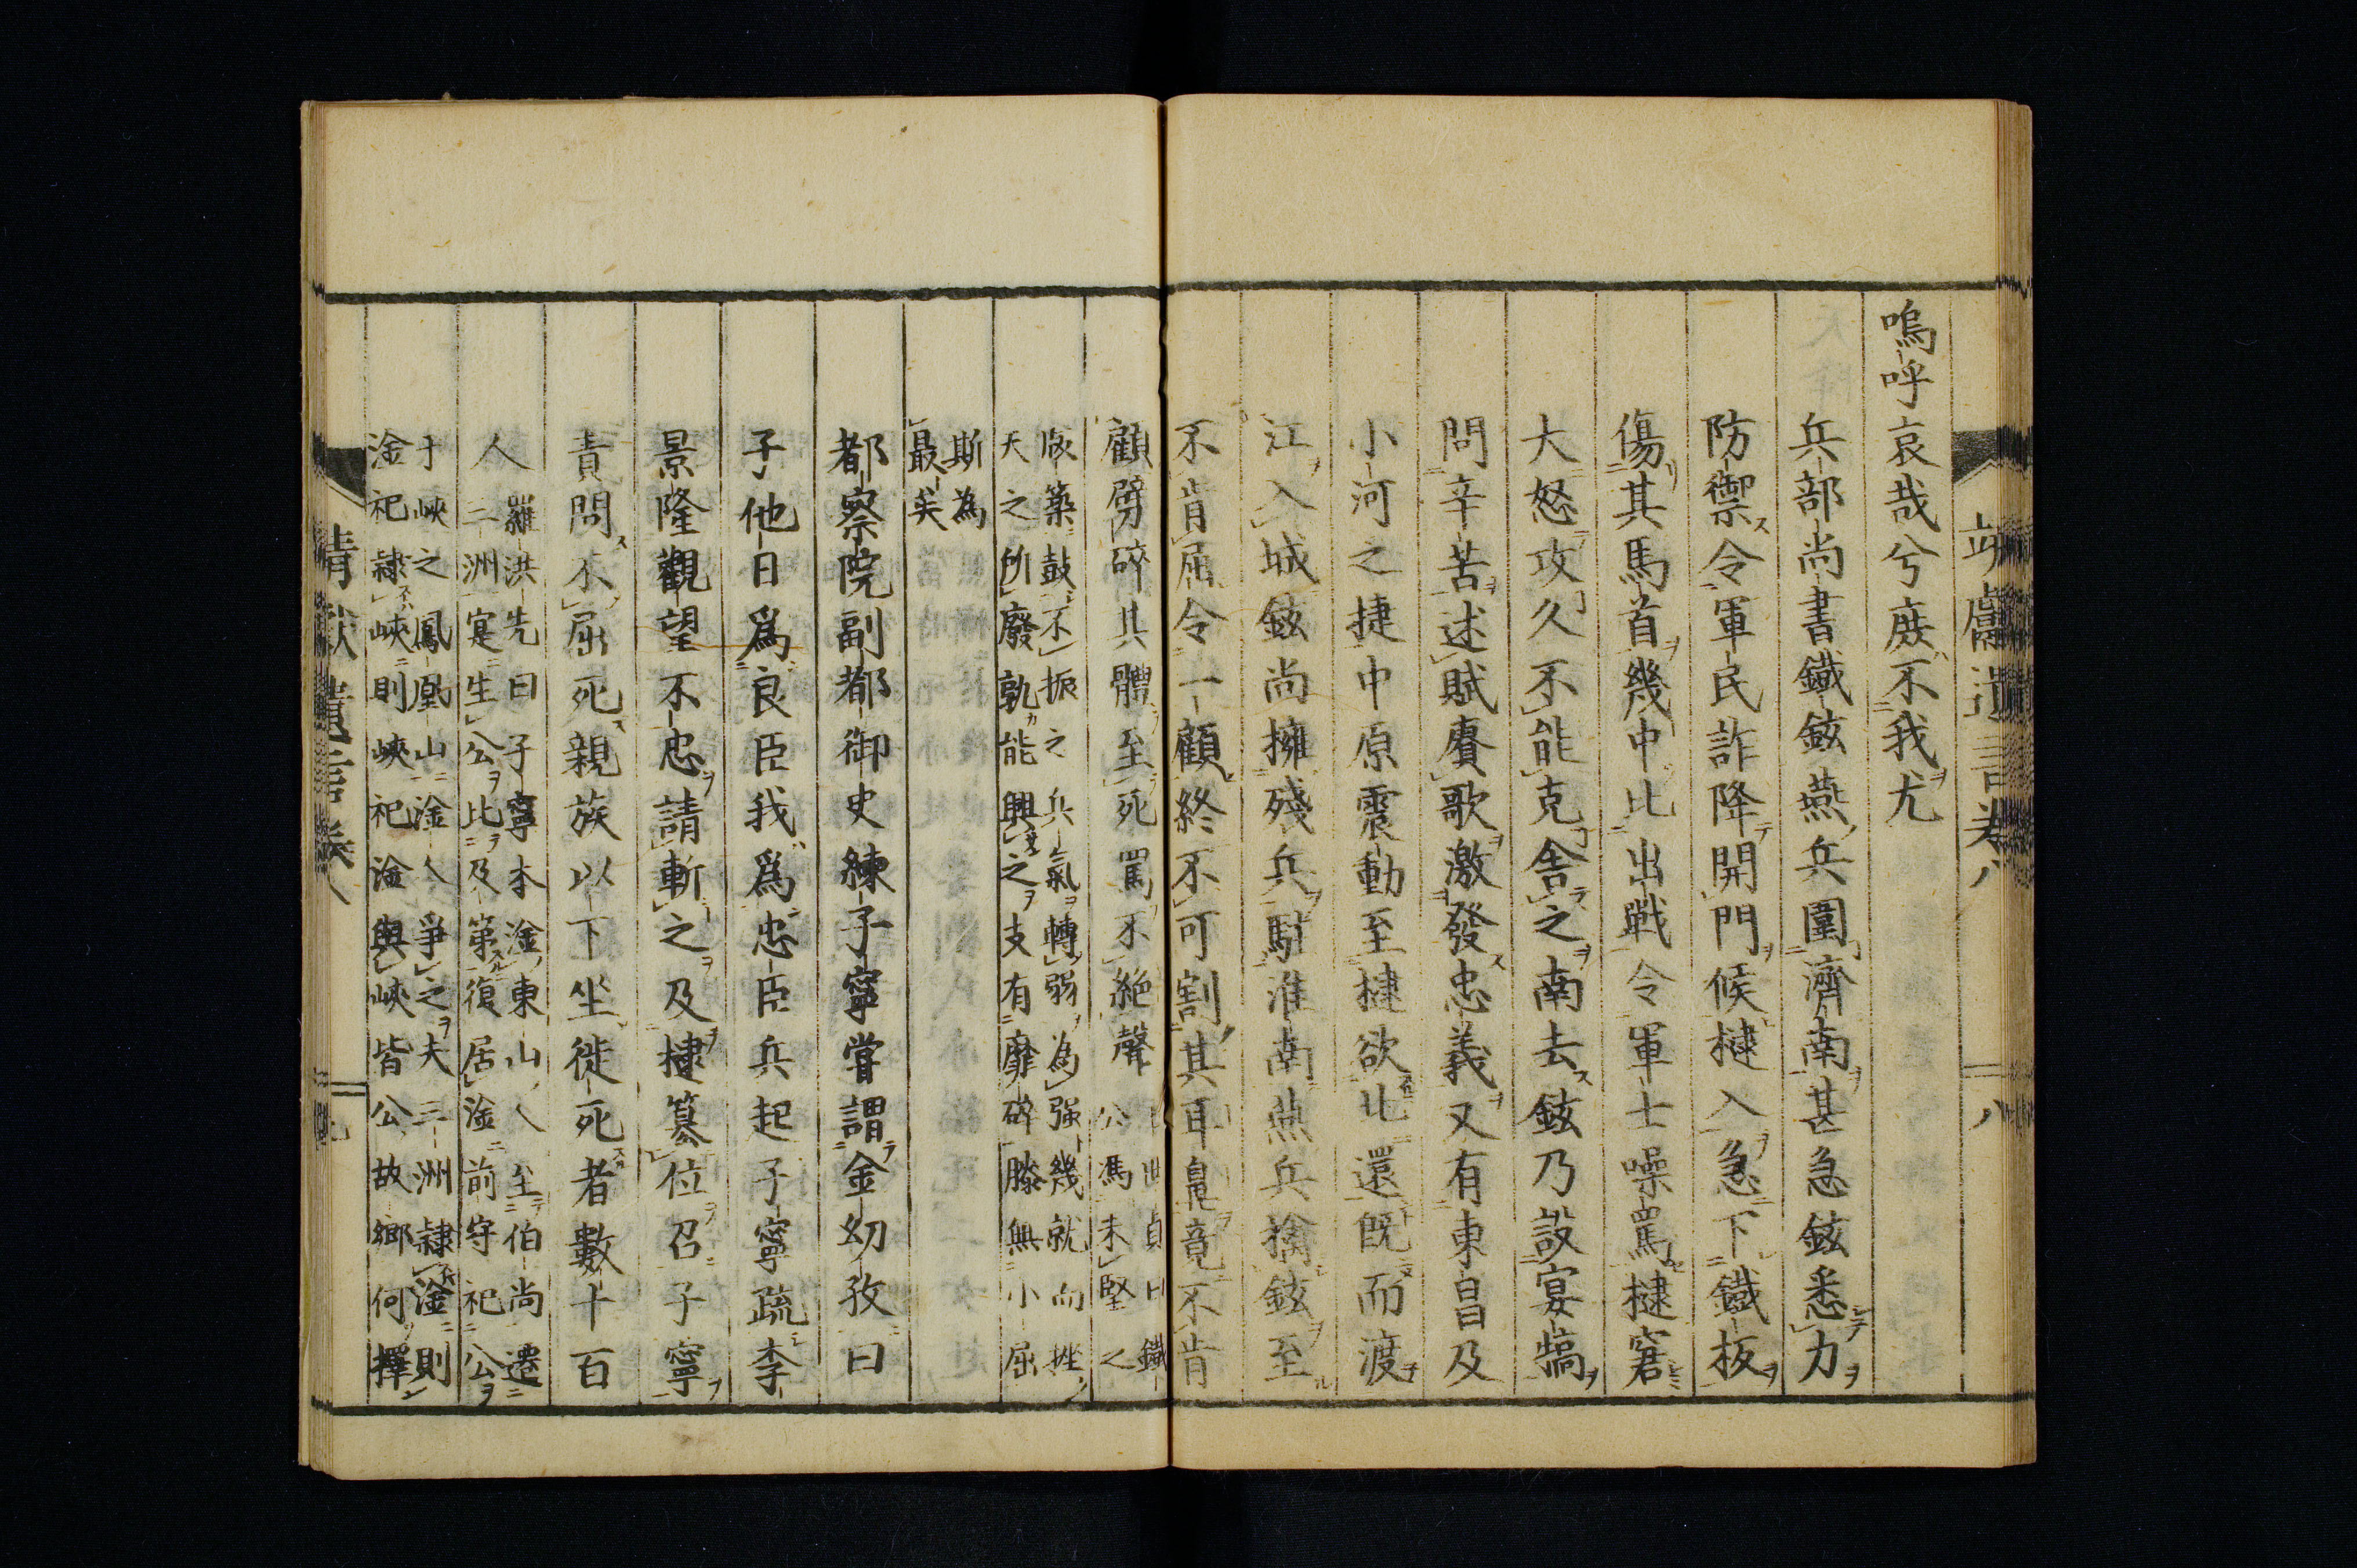 嗚呼哀哉兮庻不我尤
兵部尚書鐵鉉燕兵圍濟南甚急鉉悉力
防禦令軍民詐降開門候㨗入急下鐵板
傷其馬首幾中比出戰令軍士噪罵㨗窘
大怒攻久不能克舎之南去鉉乃設宴犒
問辛苦述賦賡歌激發忠義又有東昌及
小河之捷中原震動至㨗欲北還既而渡
江入城鉉尚擁殘兵駐淮南燕兵擒鉉至
不肯屈令一顧終不可割其耳鼻竟不肯
顧劈碎其體至死罵不絶聲
貞曰鐵
公馮未堅之
版築鼓不振之兵氣轉弱為强幾就而挫
天之所廢孰能興之支有靡碎膝無小屈
斯為
最矣
都察院副都御史練子寧嘗謂金幼孜曰
子他日爲良臣我爲忠臣兵起子寧疏李
景隆觀望不忠請斬之及㨗簒位召子寧
責問不屈死親族以下坐徙死者數十百
人
羅洪先曰子寧本淦東山人至伯尚遷
二洲寔生公比及第復居淦前守祀公
于峽之鳳凰山淦人爭之夫三洲隷淦則
淦祀隷峽則峽祀淦與峽皆公故鄉何擇
靖獻遺言卷八
八
靖獻遺言卷八